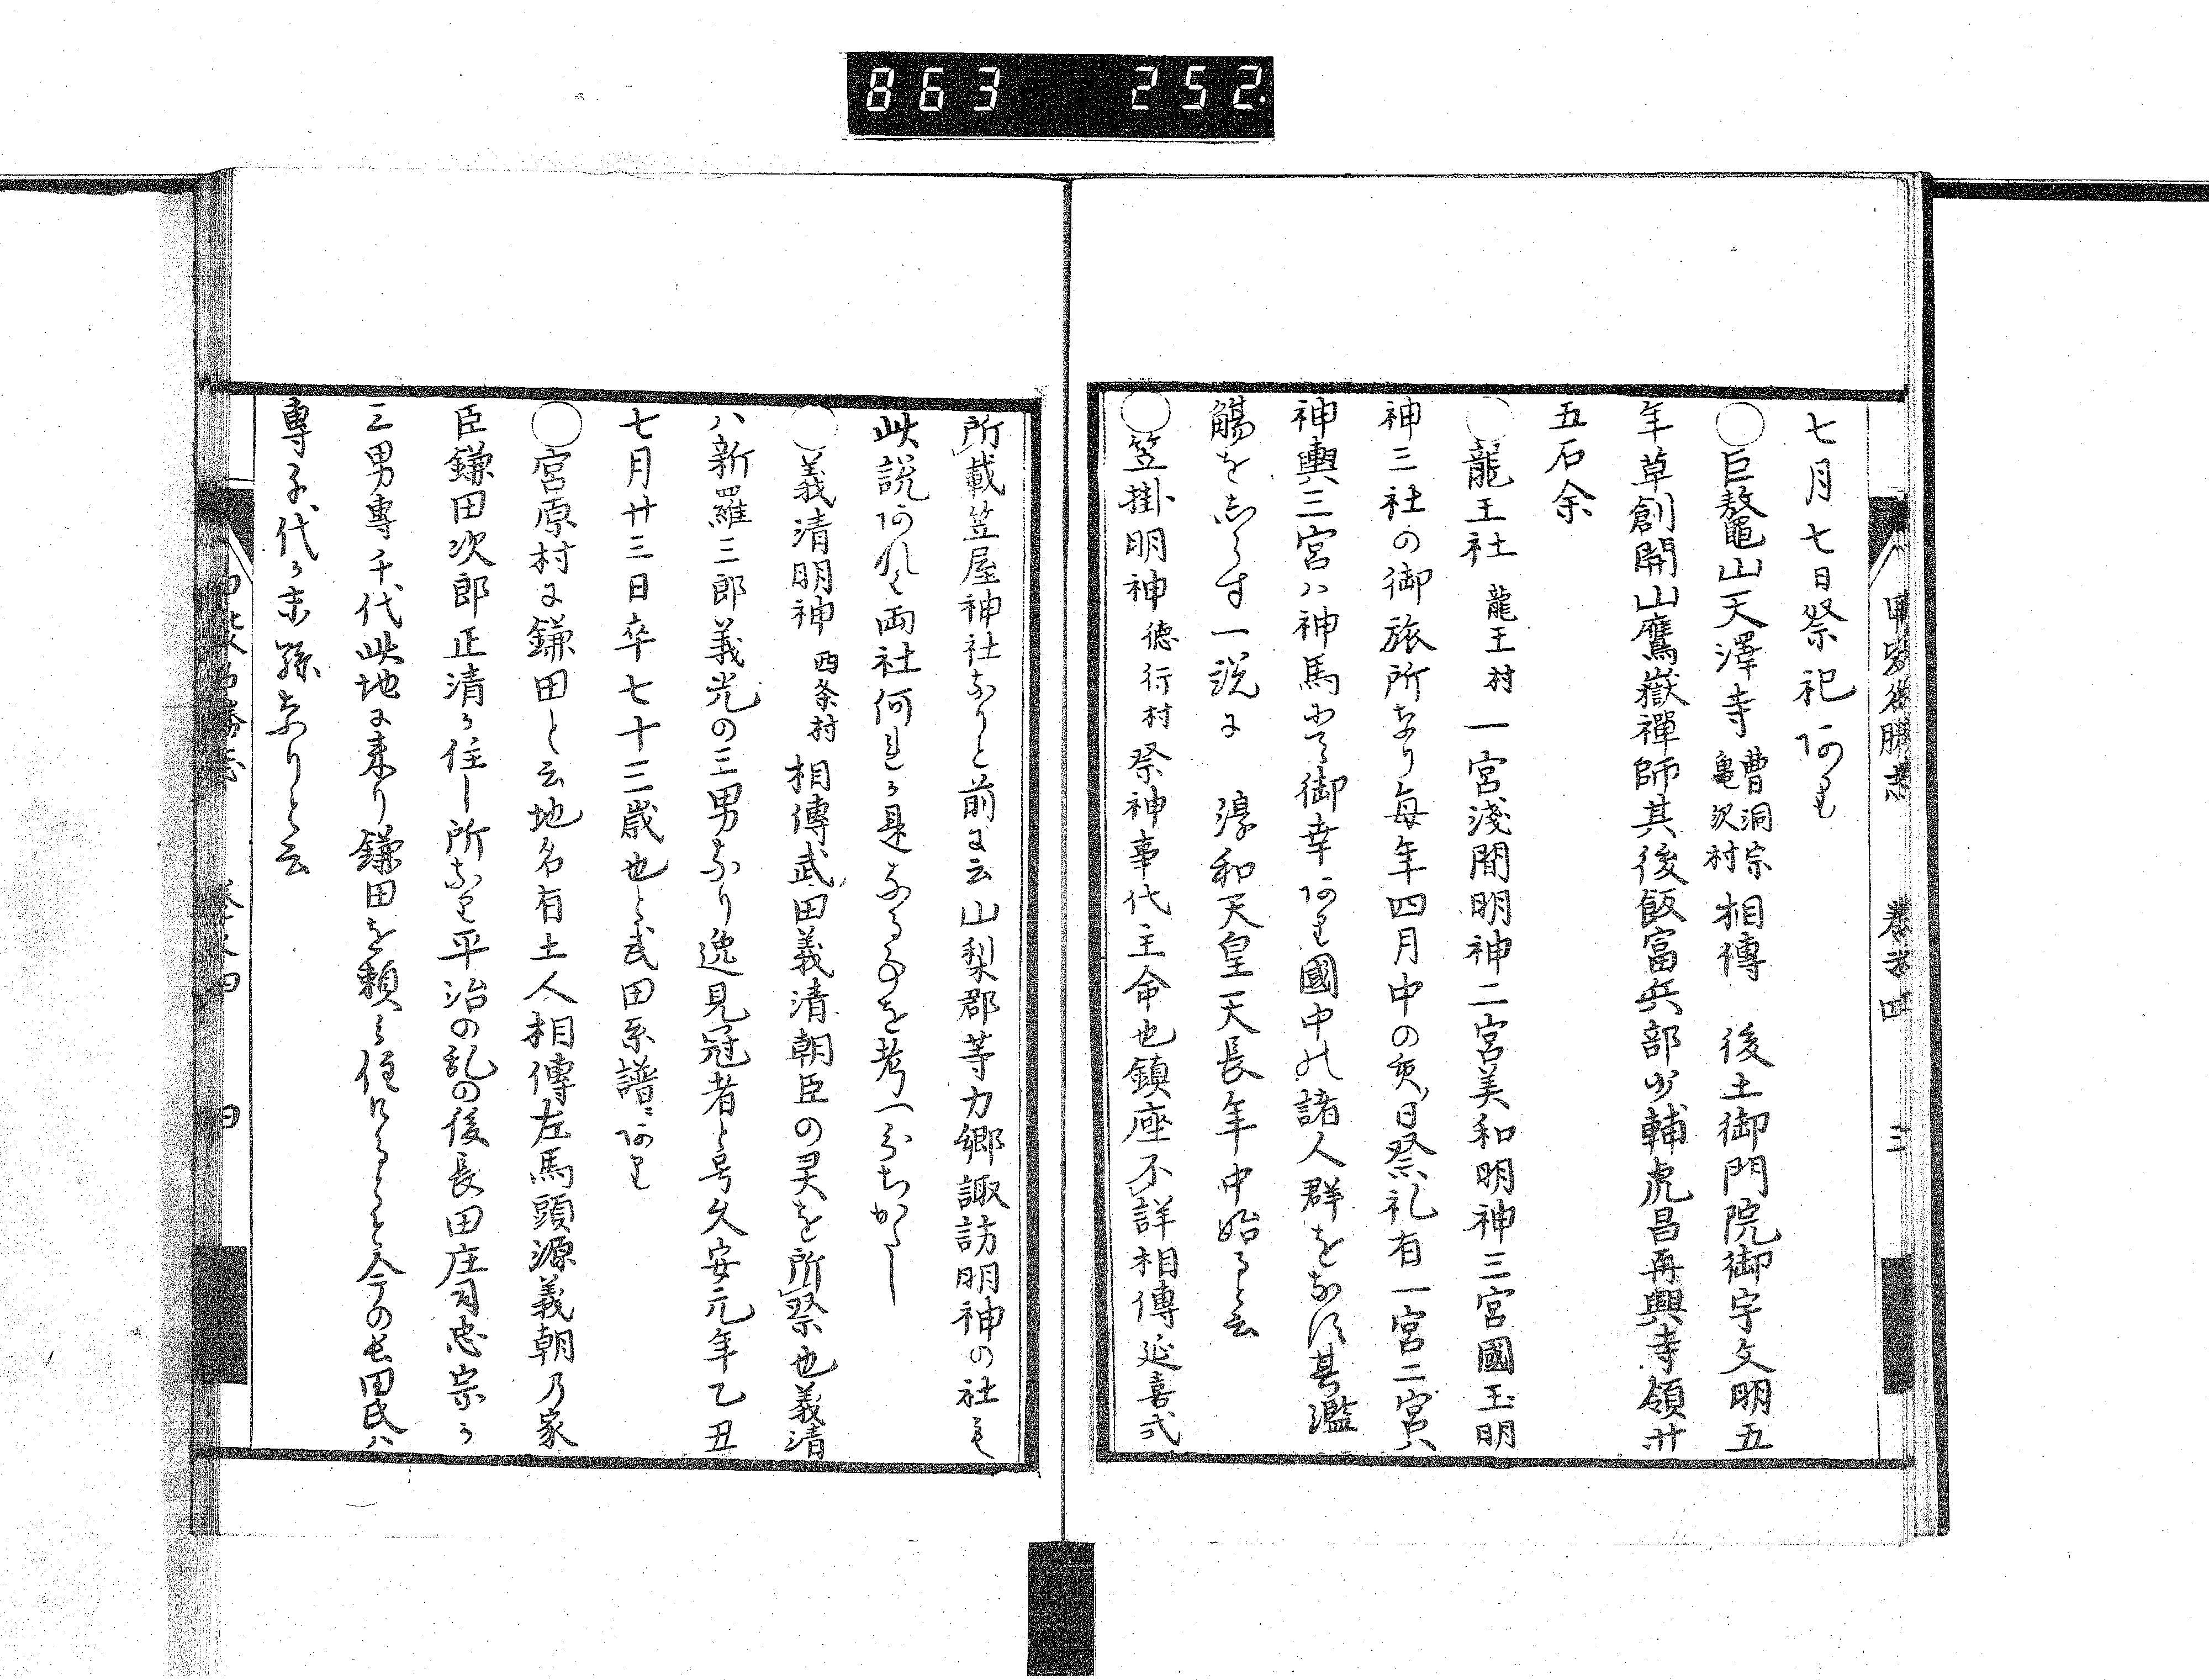 863 252
七月七日祭祀あり
○巨鼇山天澤寺 曹洞宗亀沢村 相傳 後土御門院御宇文明五
年草創開山鷹嶽禪師其後飯富兵部少輔虎昌再興寺領廿
五石余
○龍王社 龍王村 一宮淺間明神二宮美和明神三宮國玉明
神三社の御旅所なり毎年四月中の亥日祭礼有一宮二宮ハ
神輿三宮ハ神馬にて御幸あり國中の諸人群をなす其濫
觴をしらす一説に 淳和天皇天長年中始ると云
○笠掛明神 徳行村 祭神事代主命也鎮座不詳相傳延喜式
所載笠屋神社なりと前に云山梨郡等力郷諏訪明神の社も
此説あれと両社何れか是なるを考へ
○義清明神 西条村 相傳武田義清朝臣の灵を所祭也義清
ハ新羅三郎義光の三男なり逸見冠者と号久安元年乙丑
七月廿三日卒七十三歳也と武田系譜にあり
○宮原村に鎌田と云地名有土人相傳左馬頭源義朝乃家
臣鎌田次郎正清か住し所なり平治の乱の後長田庄司忠宗か
三男専千代此地に来り鎌田を頼み住けると今の長田氏ハ
専千代か末孫なりと云